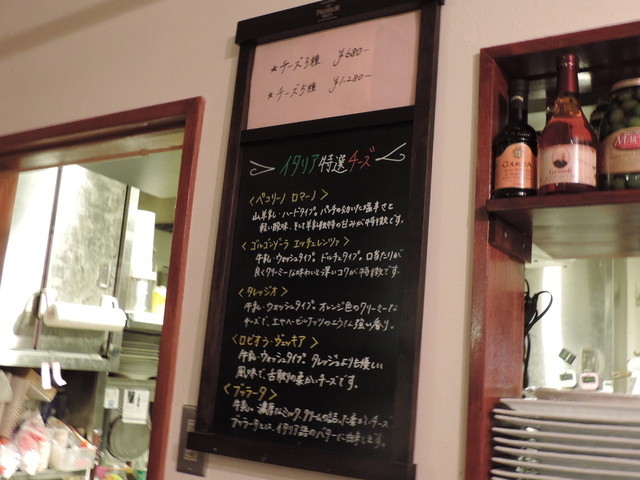 ★チーズ3種 ¥680-
★チーズ5種 ¥1,280-
イタリア特選チーズ
<ペコリーノ ロマーノ>
山羊乳・ハードタイプ。パンチの効いた塩辛さと
軽い酸味、そして羊乳独特の甘みが特徴です。
<ゴルゴンゾーラ エッチェレンツァ>
牛乳・ウォッシュタイプ。ドルチェタイプ。口当たりが
良くクリーミーな味わいと深いコクが特徴です。
<タレッジオ>
牛乳・ウォッシュタイプ。オレンジ色のクリーミーな
チーズで、エヤヘーゼルナッツのような強い香り。
<ロビオラ・ヴェッキア>
牛乳・ウォッシュタイプ。タレッジョよりも優しい
風味で、舌触りの柔らかいチーズです。
<ブッラータ>
牛乳。濃厚なミルク、クリームの詰った チーズ。
ブッラータとは、イタリア語のバターに由来します。